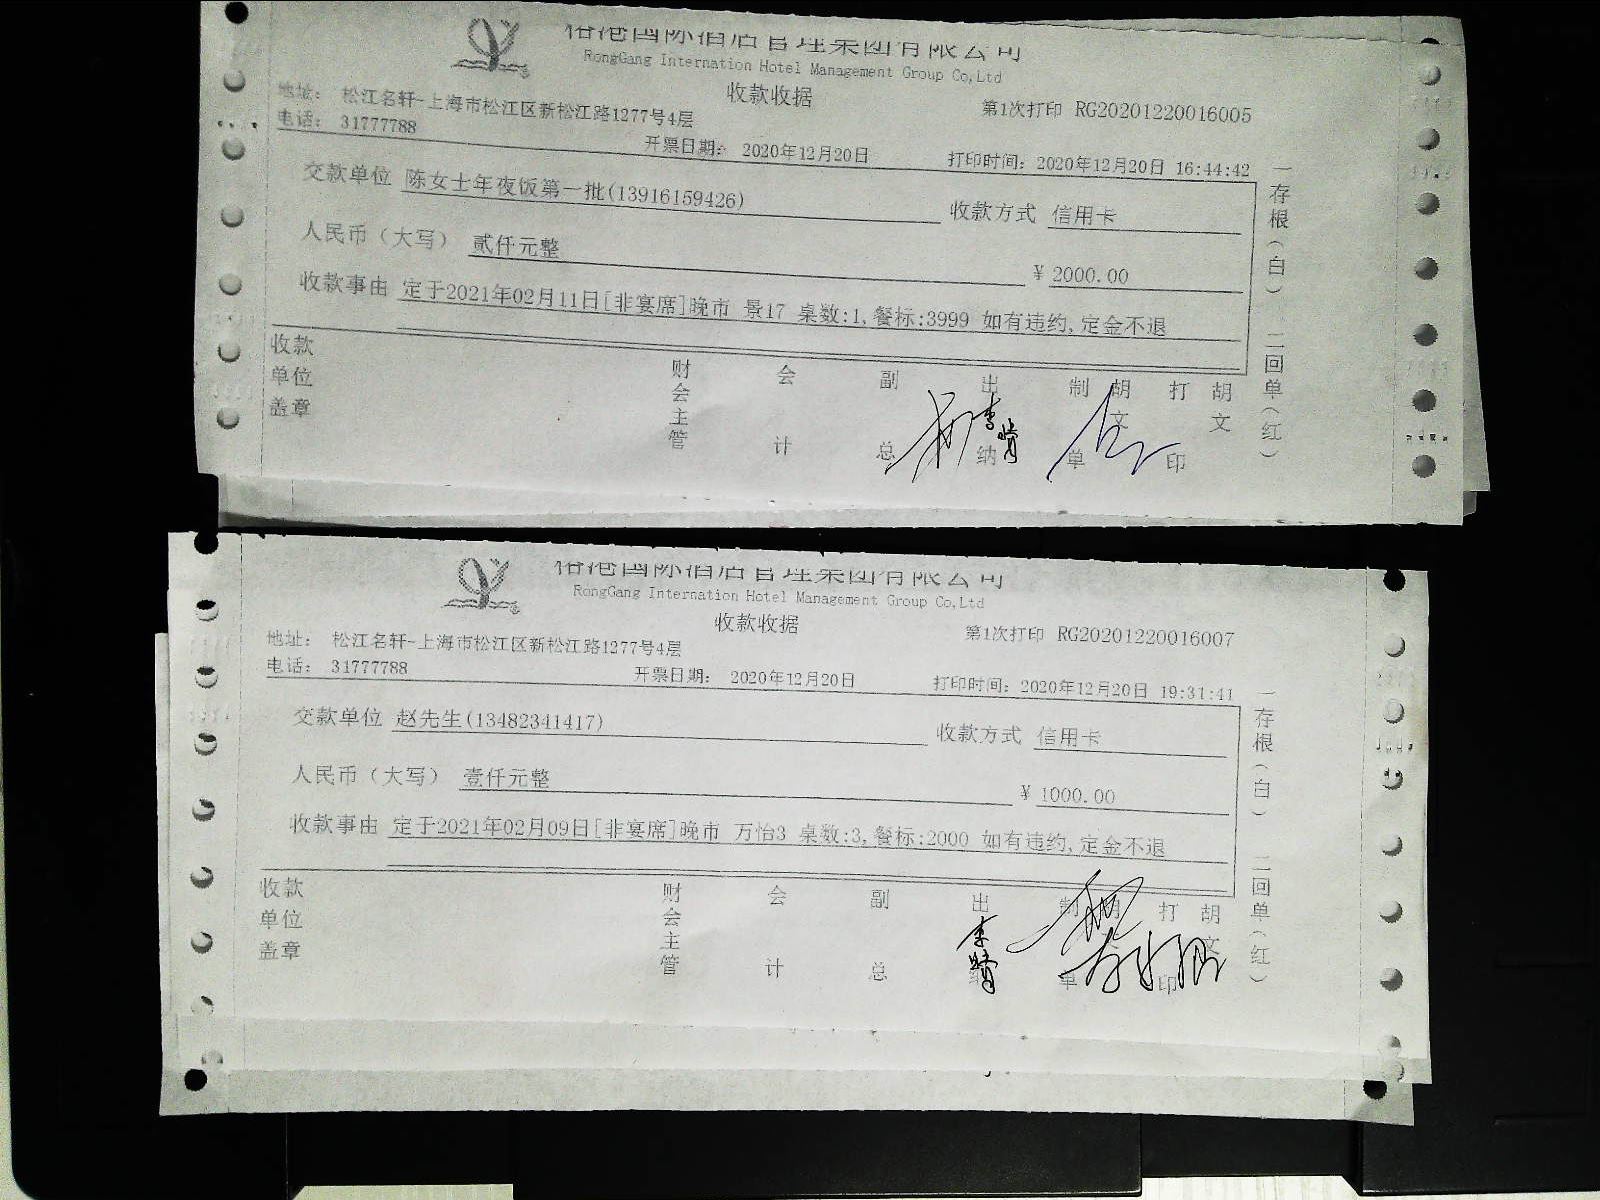 格港国际酒店管理集团有限公司
RongGang Internation Hotel Management Group Co,Ltd
收款收据
地址： 松江名轩-上海市松江区新松江路1277号4层
第1次打印 RG20201220016005
电话： 31777788
开票日期： 2020年12月20日
打印时间：2020年12月20日 16:44:42
交款单位 陈女士年夜饭第一批(13916159426)
收款方式 信用卡
人民币（大写） 贰仟元整
¥ 2000.00
收款事由 定于2021年02月11日[非宴席]晚市 景17 桌数:1,餐标:3999 如有违约,定金不退
收款单位盖章
财会主管
会计
副总
出纳
制单
胡文
打印
胡文
一存根（白） 二回单（红）
格港国际酒店管理集团有限公司
RongGang Internation Hotel Management Group Co,Ltd
收款收据
地址： 松江名轩-上海市松江区新松江路1277号4层
第1次打印 RG20201220016007
电话： 31777788
开票日期： 2020年12月20日
打印时间：2020年12月20日 19:31:41
交款单位 赵先生(13482341417)
收款方式 信用卡
人民币（大写） 壹仟元整
¥ 1000.00
收款事由 定于2021年02月09日[非宴席]晚市 万怡3 桌数:3,餐标:2000 如有违约,定金不退
收款单位盖章
财会主管
会计
副总
出纳
制单
胡文
打印
胡文
一存根（白） 二回单（红）